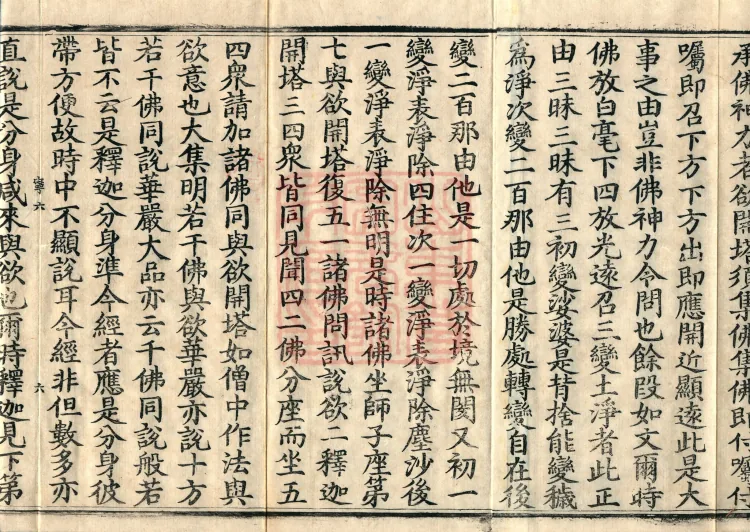 承佛神力者欲開塔須集佛集佛即付囑付
囑即召下方下方出即應開近顯遠此是大
事之由豈非佛神力令問也餘段如文爾時
佛放白毫下四放光遠召三變土淨者此正
由三昧三昧有三初變娑婆是背捨能變穢
為淨次變二百那由他是勝處轉變自在後
變二百那由他是一切處於境無閡又初一
變淨表淨除四住次一變淨表淨除塵沙後
一變淨表淨除無明是時諸佛坐師子座第
七與欲開塔復五一諸佛問訊說欲二釋迦
開塔三四衆皆同見聞四二佛分座而坐五
四衆請加諸佛同與欲開塔如僧中作法與
欲意也大集明若干佛與欲華嚴亦說十方
若干佛同說華嚴大品亦云千佛同說般若
皆不云是釋迦分身準今經者應是分身彼
帶方便故時中不顯說耳今經非但數多亦
寧六 六
直說是分身咸來與欲也爾時釋迦見下第